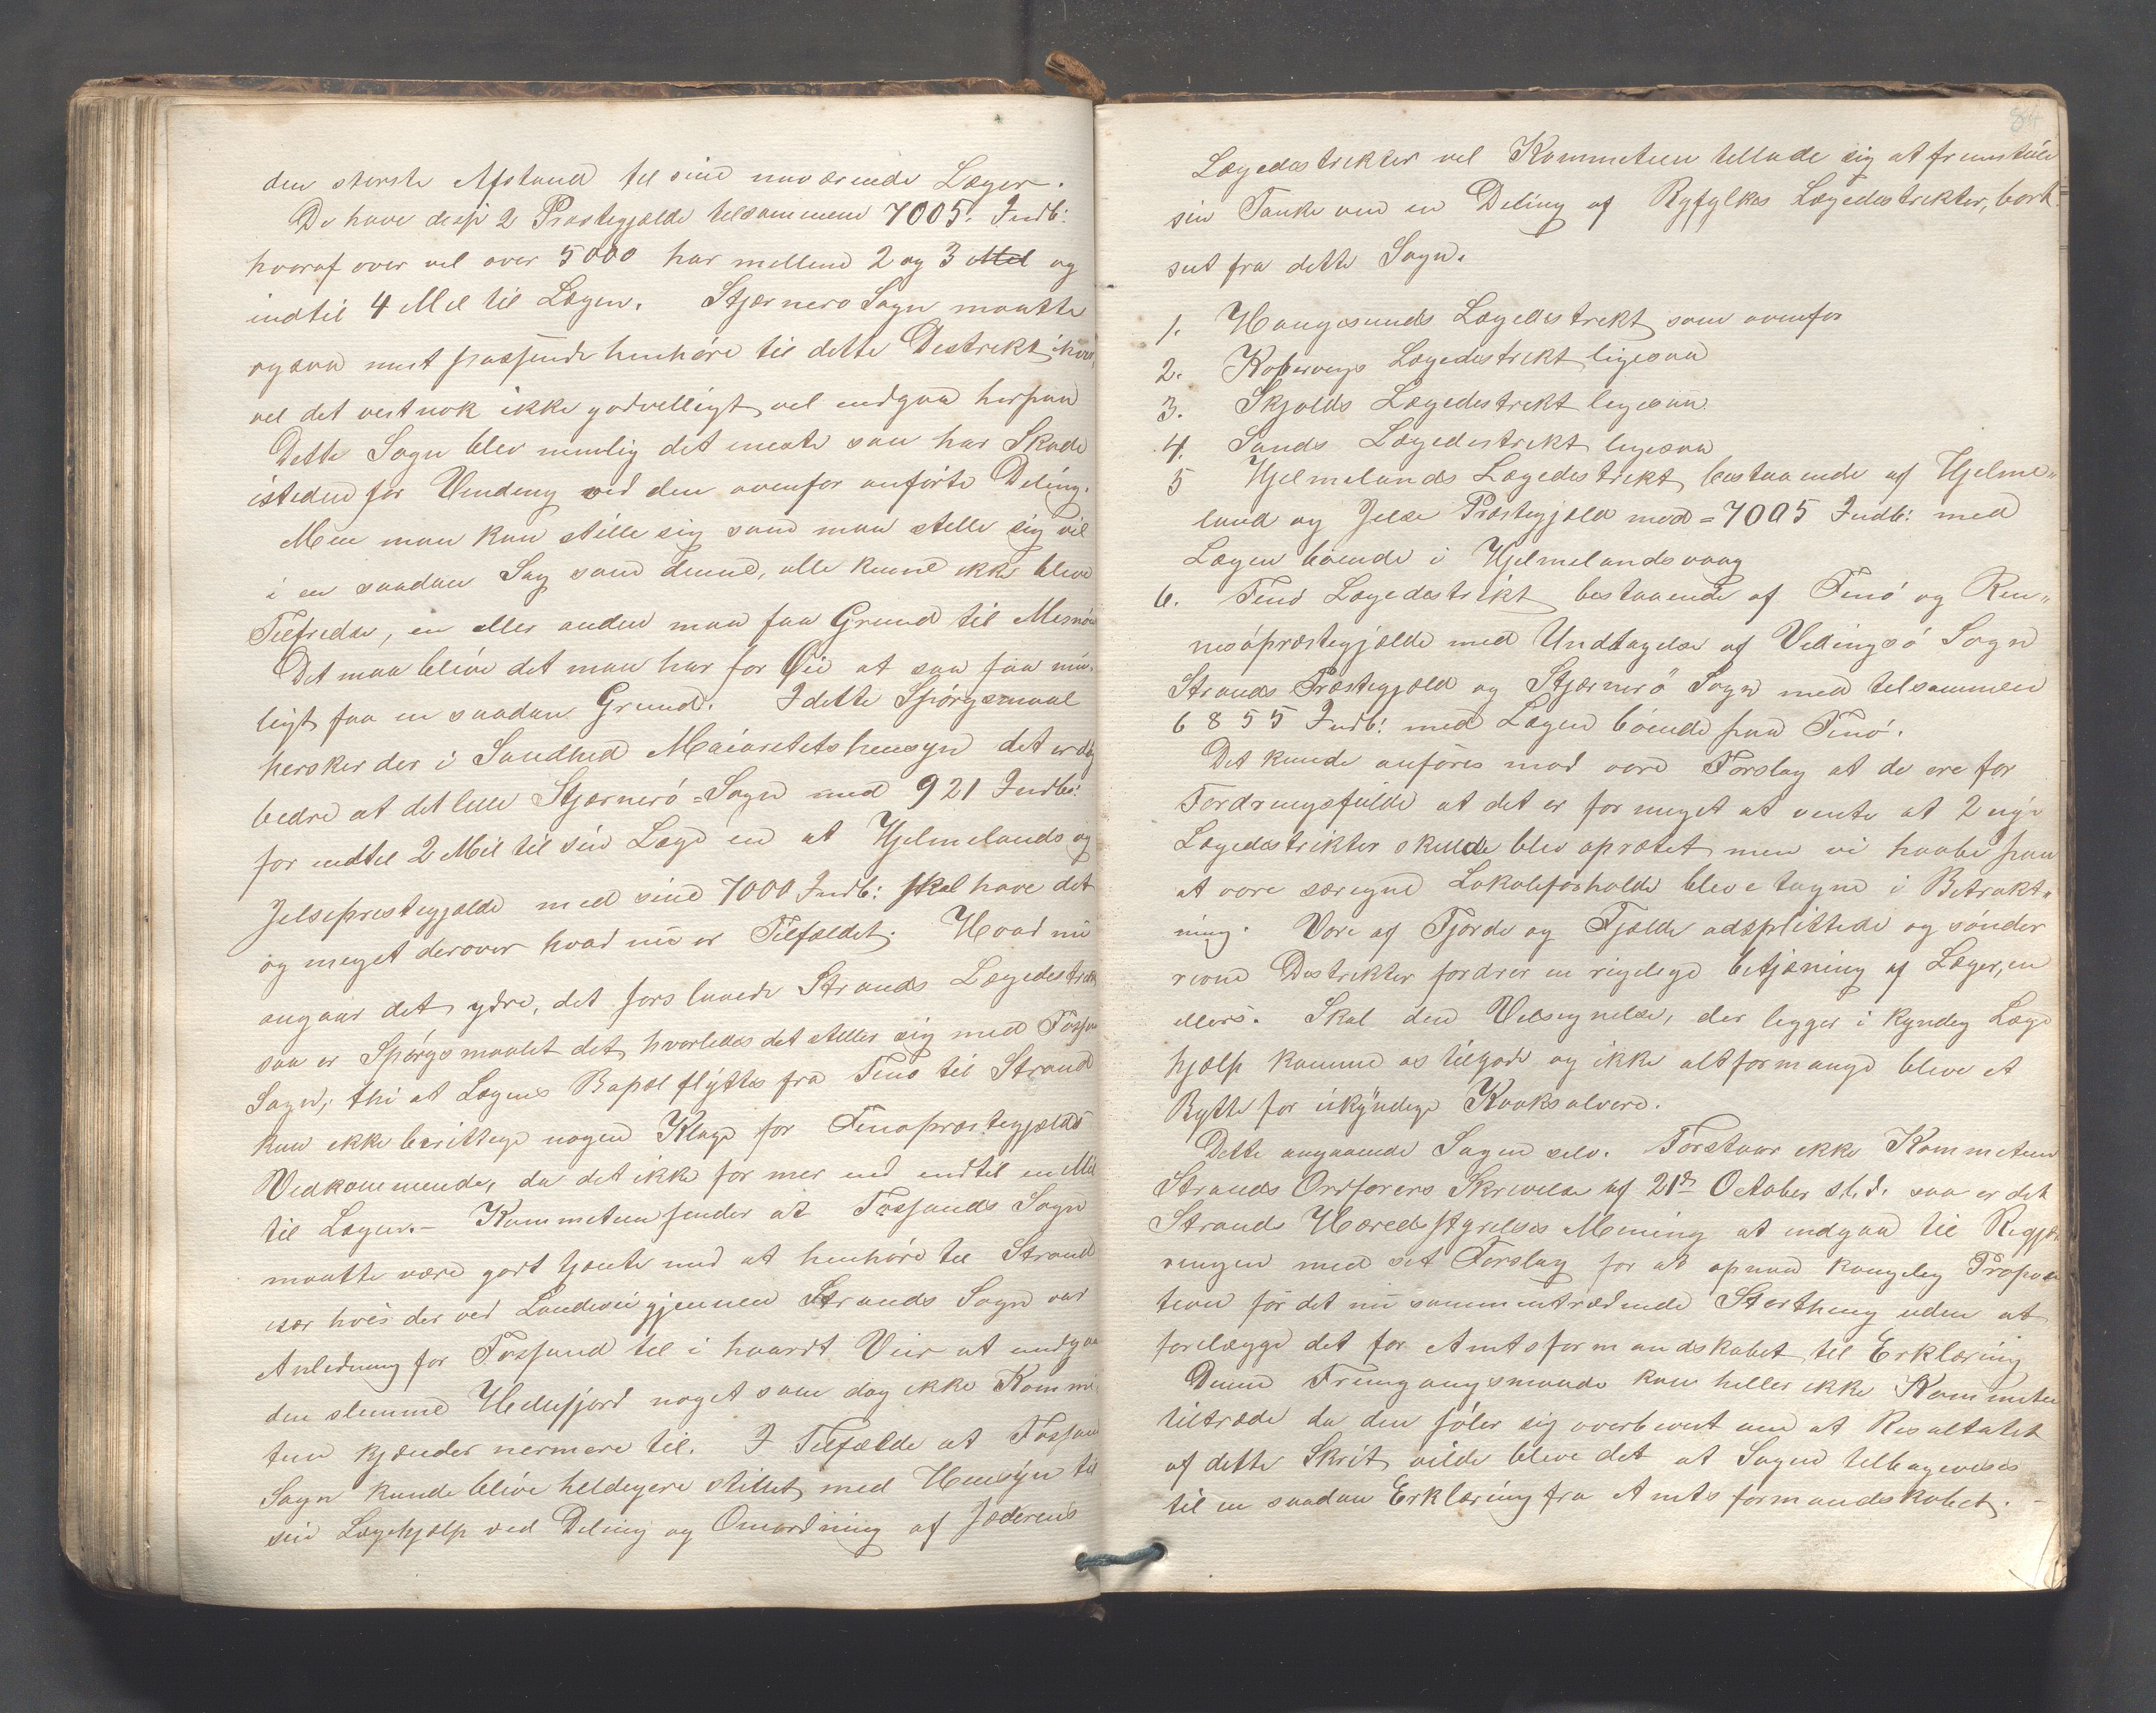 den sterste Afstand til sine nuværende Læger.
De have disse 2 Prestegjælde tilsammen 7005 Indb:
hvoraf over vel over 5000 har mellem 2 og 3 Mil og
indtil 4 Mil til Lægen. Stjernerø Sogn maatte
ogsaa mest passende henhøre til dette Destrekt ihvor
vel det vestnok ikke godvelligt vel indgaa herpaa
Dette Sogn blev nemlig det eneste som har Skade
isteden for Vinding ved den ovenfor anførte Deling.
Men man kan stille sig som man stelle sig vil
i en saadan Sag som denne, alle kunne ikke blive
Tilfredse, en eller anden maa faa Grund til Misnøie
Det maa blive det man har for Øie at saa faa mu-
ligt faa en saadan Grund. I dette Spørgsmaal
hersker der i Sandhed Maioritetshensyn det er dog
bedre at det lille Stjernerø-Sogn med 921 Indb:
for indtil 2 Mil til sin Læge en at Hjelmelands og
Jelseprestegjælde med sine 7000 Indb: skal have det
og meget derover hvad nu er Tilfældet. Hvad nu
angaar det ydre, det forslaaede Strands Lægedestrekt
saa er Spørgsmaalet det hvorledes det stiller sig med Fossan
Sogn, thi at Lægens Bopæl flyttes fra Finø til Strand
kan ikke berettige nogen Klage for Finøprestegjelds
Vedkommende, da det ikke for mer end indtil en Mil
til Lægen.- Kommeteen finder at Fossands Sogn
maatte være godt tjente med at henhøre til Strand
især hvis der ved Landevei gjennem Strands Sogn var
Anledning for Fossand til i haardt Veir at undgaa
den slemme Hølefjord noget som dog ikke Kommi-
teen kjender nermere til. I Tilfælde at Fossan
Sogn kunde blive heldigere stillet med Hensyn til
sin Lægehjælp ved Deling og Omordning af Jæderens
84
Lægedestrekter vel Kommeteen tellade sig at fremstille
sin Tanke om en Deling af Ryfylkes Lægedestrekter, bort
set fra dette Sogn.
1. Haugesunds Lægedestrekt som ovenfor
2. Kopervigs Lægedestrekt ligesaa
3. Skjolds Lægedestrekt ligesaa
4. Sands Lægedestrekt ligesaa
5 Hjelmelands Lægedestrekt bestaaende af Hjelme„
land og Jelse Prestegjæld med = 7005 Indb: med
Lægen boende i Hjelmelandsvaag
6. Finø Lægedestrikt bestaaende af Finø og Ren„
nesøprestegjælde med Undtagelse af Vedingsø Sogn
Strands Præstegjæld og Stjernerö Sogn med tilsammen
6855 Indb: med Lægen boende paa Finø.
Det kunde anføres mod vore Forslag at de ere for
Fordringsfulde at det er for meget at vente at 2 nye
Lægedestrikter skulde blev oprettet men vi haabe paa
at vore særegne Lokaleforholde bleve tagne i Betrakt„
ning. Vore af Fjorde og Fjælde adsplittede og sønder
revne Destrikter fordrer en rigelige betjæning af Læger, en
ellers. Skal den Velsignelse, der legger i kyndig Læge
hjælp komme os tilgode og ikke altformange bleve et
Bytte for ukyndige Kvaksalvere.
Dette angaaende Sagen selv. Forstaar ikke Kommeteen
Strands Ordførers Skrivelse af 21de October s.l.d. saa er det
Strands Heredsstyrelses Mening at indgaa til Regje-
ringen med set Forslag for at opnaa kongelig Propose
tion for det nu sammentrædende Storthing uden at
forelægge det for Amtsformandskabet til Erklæring
Denne Fremgangsmaade kan heller ikke Kommeteen
tiltræde da den føler sig overbevist om at Resultatet
af dette Skrit vilde bleve det at Sagen telbageveses
til en saadan Erklæring fra Amtsformandskabet. -